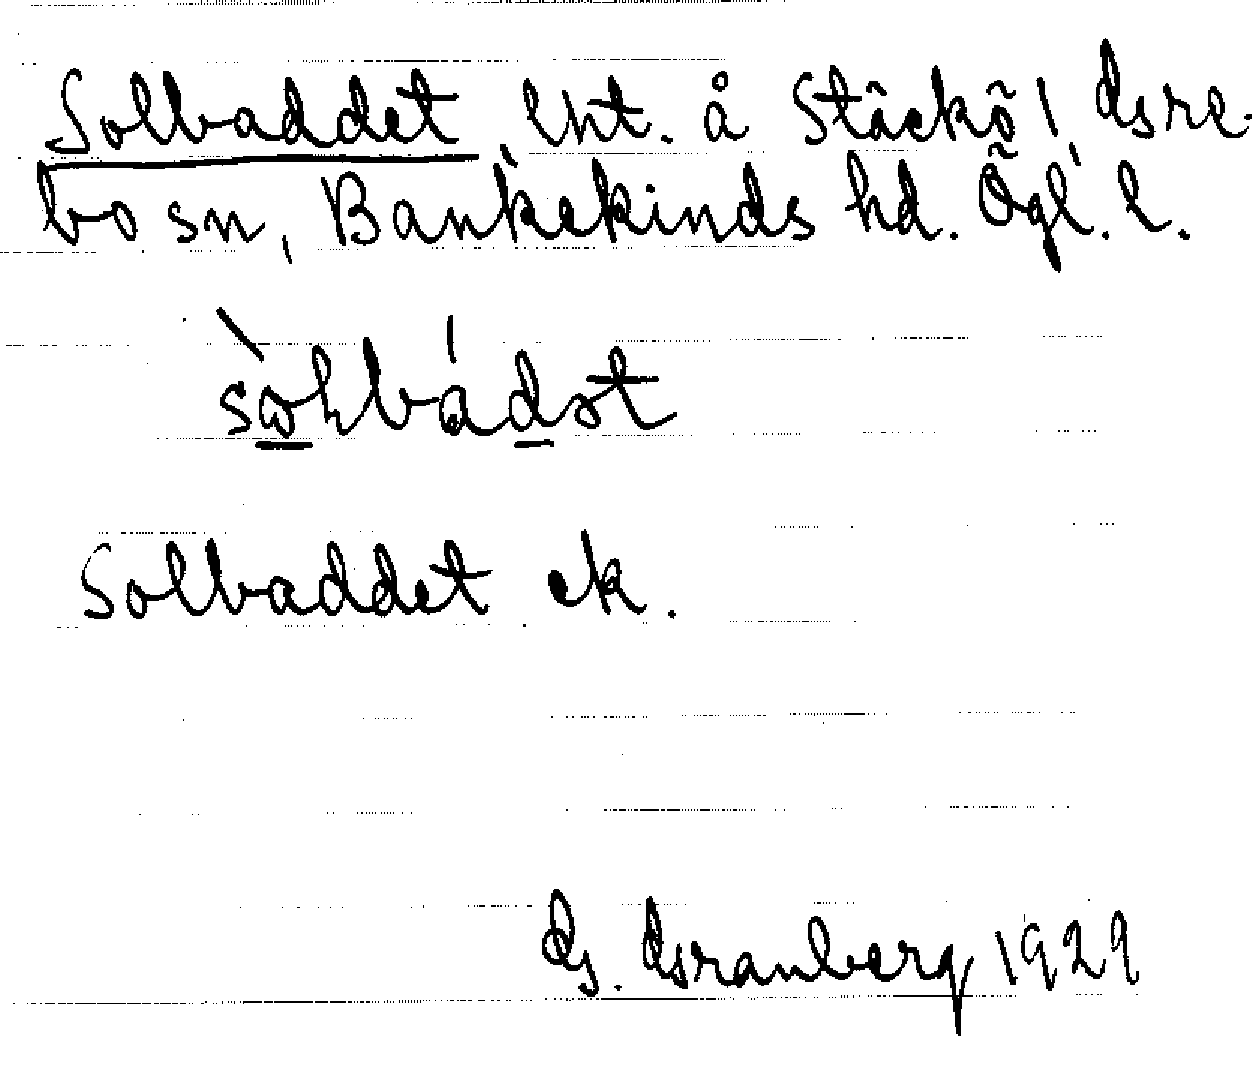 Solbaddet, lht. å Stäckö, Gre-
bo sn, Bankekinds hd. Ögl. l.
Solbaddet ek.
G. Granberg 1929